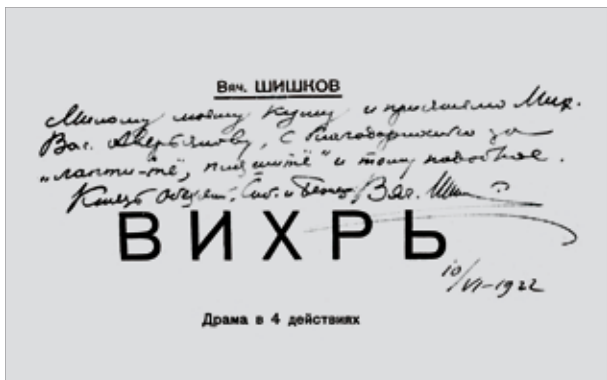 Вяч. ШИШКОВ
Милому моему куму и приятелю Мих.
Вас. Аверьянову, с благодарностью за
„лапти-тё, пишитё" и тому подобное.
Вяч. Шиш
ВИХРЬ
10/VI-1922
Драма в 4 действиях